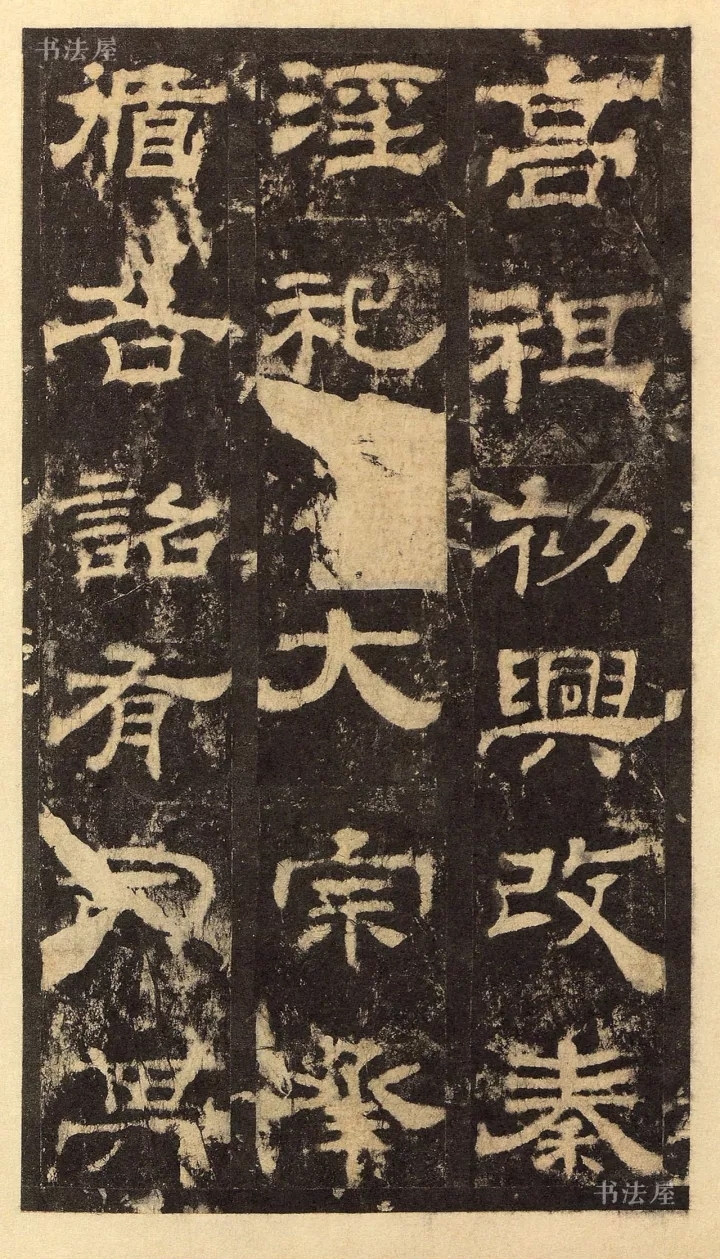 书法屋
高祖初興改秦
淫祀大宗承
循各詔有司其
书法屋